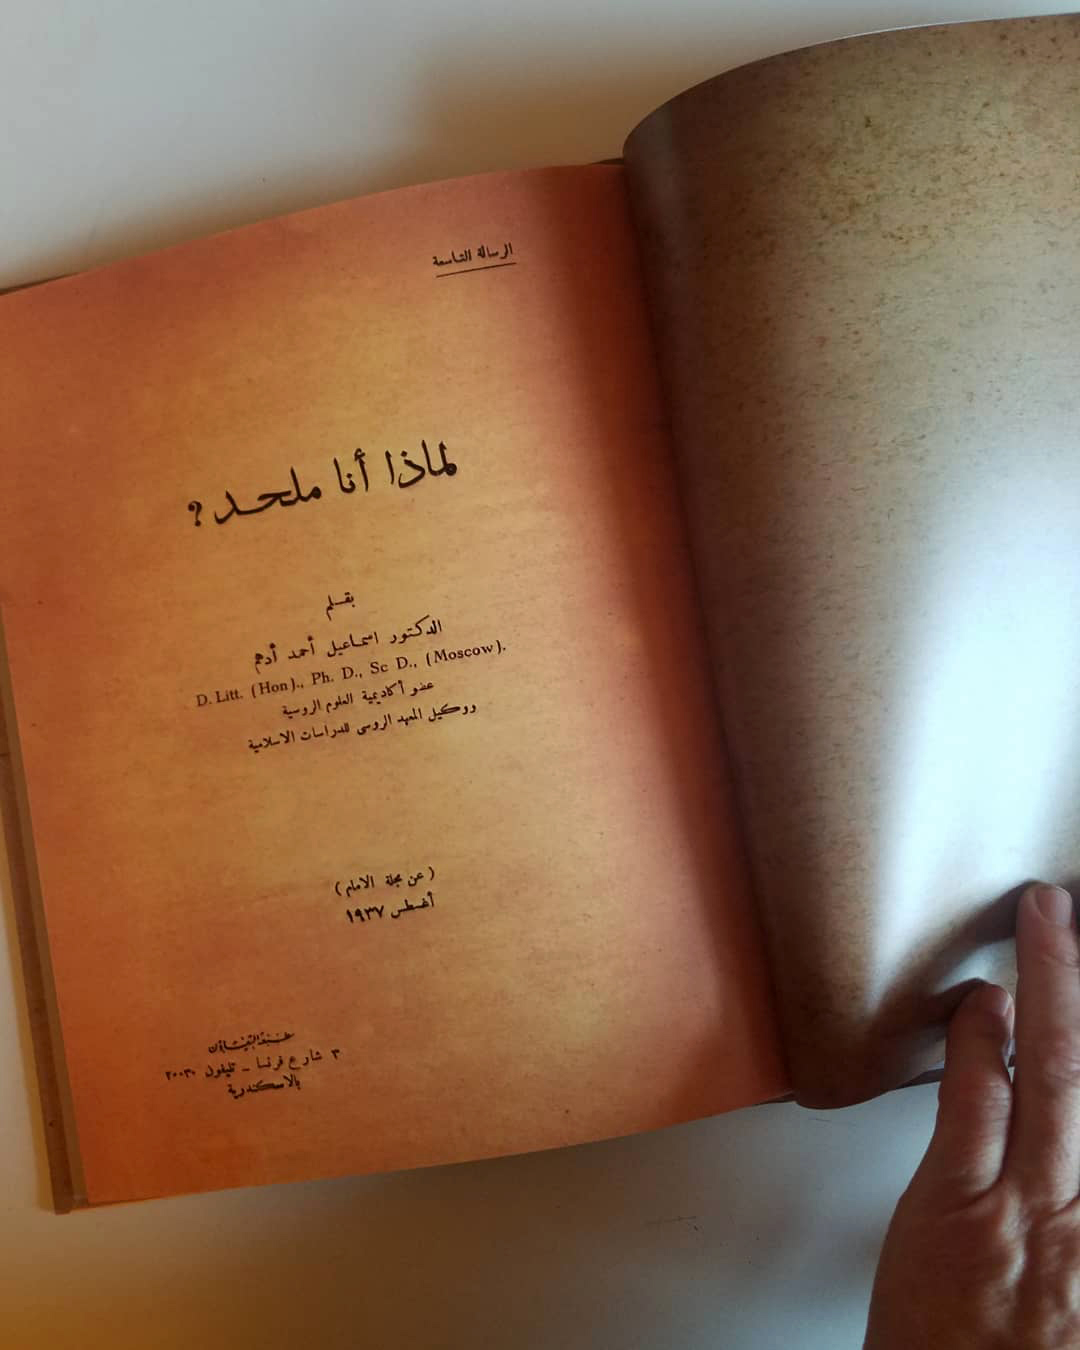 الرسالة التاسعة
لماذا أنا ملحد؟
بقلم
الدكتور اسماعيل أحمد أدهم
D. Litt. (Hon)., Ph. D., Sc D., (Moscow).
عضو أكاديمية العلوم الروسية
ووكيل المعهد الروسى للدراسات الاسلامية
( عن مجلة الامام )
أغسطس ١٩٣٧
٣ شارع فرنسا ـ تليفون ٢٠٠٣٠
بالاسكندرية